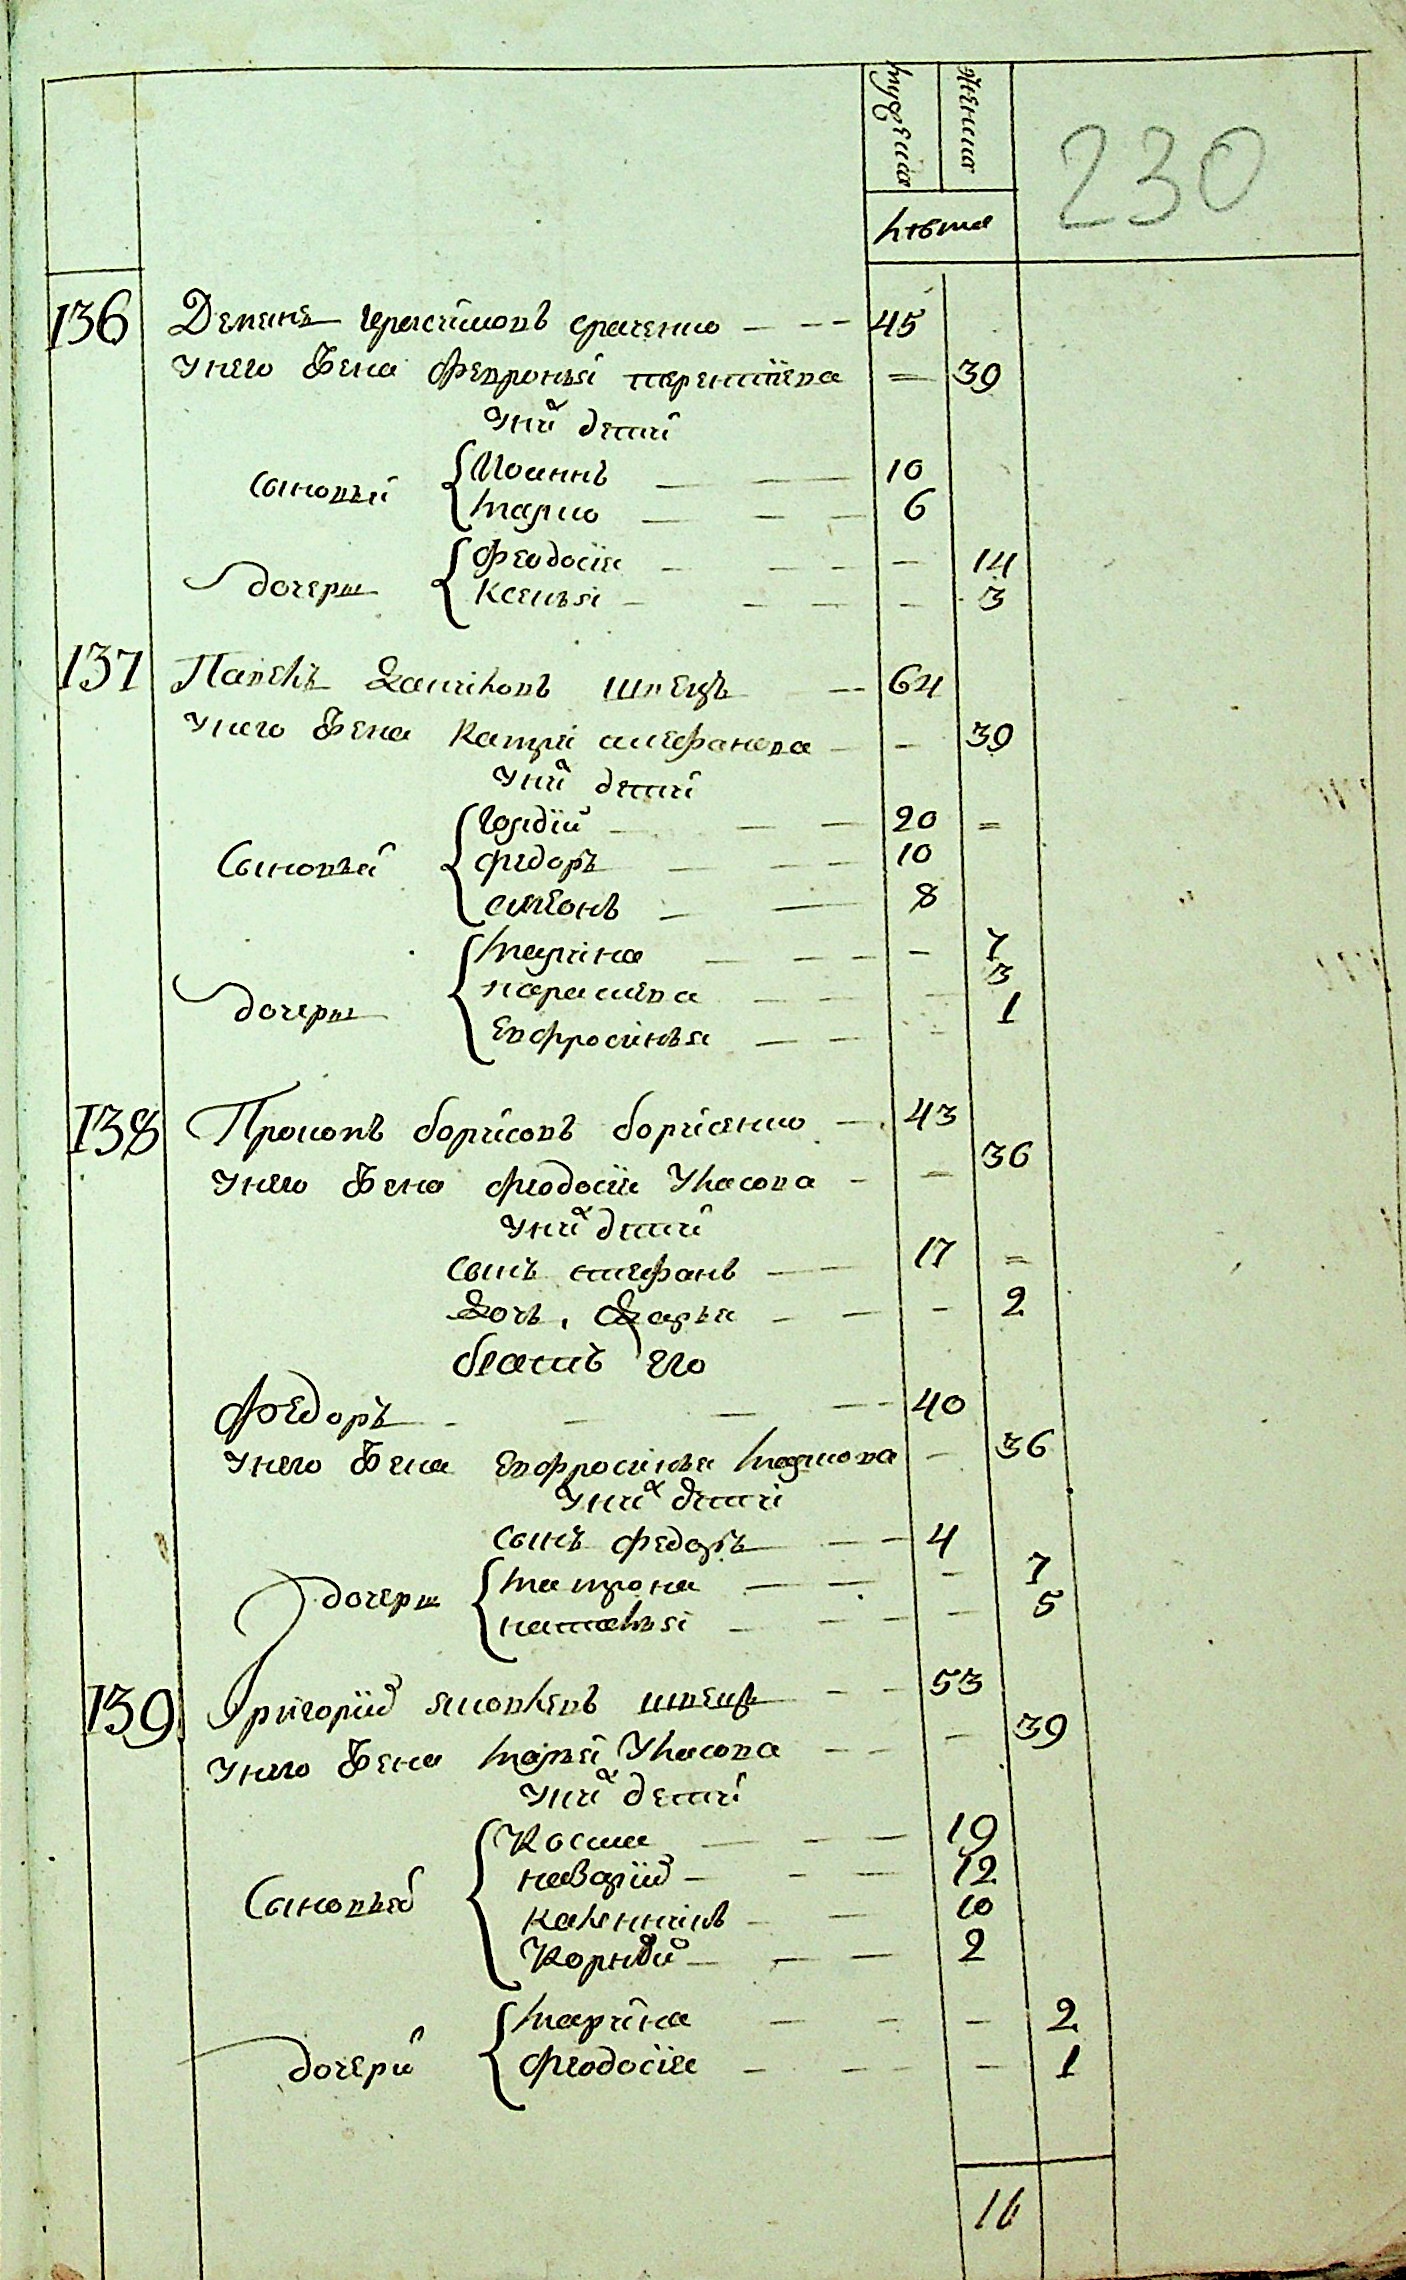 мужеска
женска
230
лѣта
136 Деменъ Герасимовъ 45
у него жена Февронья терентиева = 39
у них дети
сыновьи Иоаннъ 10
Марко 6
дочери Феодосия - 14
Ксенья - 3
137 Павелъ Даниловъ швецъ 64
у него жена Катри стефанова - 39
у них дети
Сыновьи Гордий 20 =
федоръ 10
симеонъ 8
дочери Марина - 7
параскева - 3
Евфросинья - 1
138 Прокопъ борисовъ борисенко 43
у него жена феодосия Уласова - 36
у них дети
сынъ стефанъ 17 =
Дочь Дарья - 2
братъ его
Федоръ 40
у него жена Евфросинья Маркова - 36
у них дети
сынъ федоръ 4
дочери Матрона - 7
наталья - 5
139 Григорий яковлевъ швецъ 53
у него жена Марья Уласова - 39
у них дети
Сыновьи Косма 19
назарий 12
калинникъ 10
Корней 2
дочери Марина - 2
феодосия - 1
16